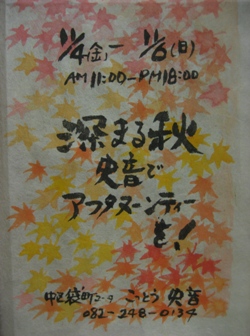 11/4(金)ー 11/6(日)
AM11:00-PM18:00
深まる秋
史音で
アフタヌーンティー
を!
中区袋町3-9 こっとう 史音
082-248-0134